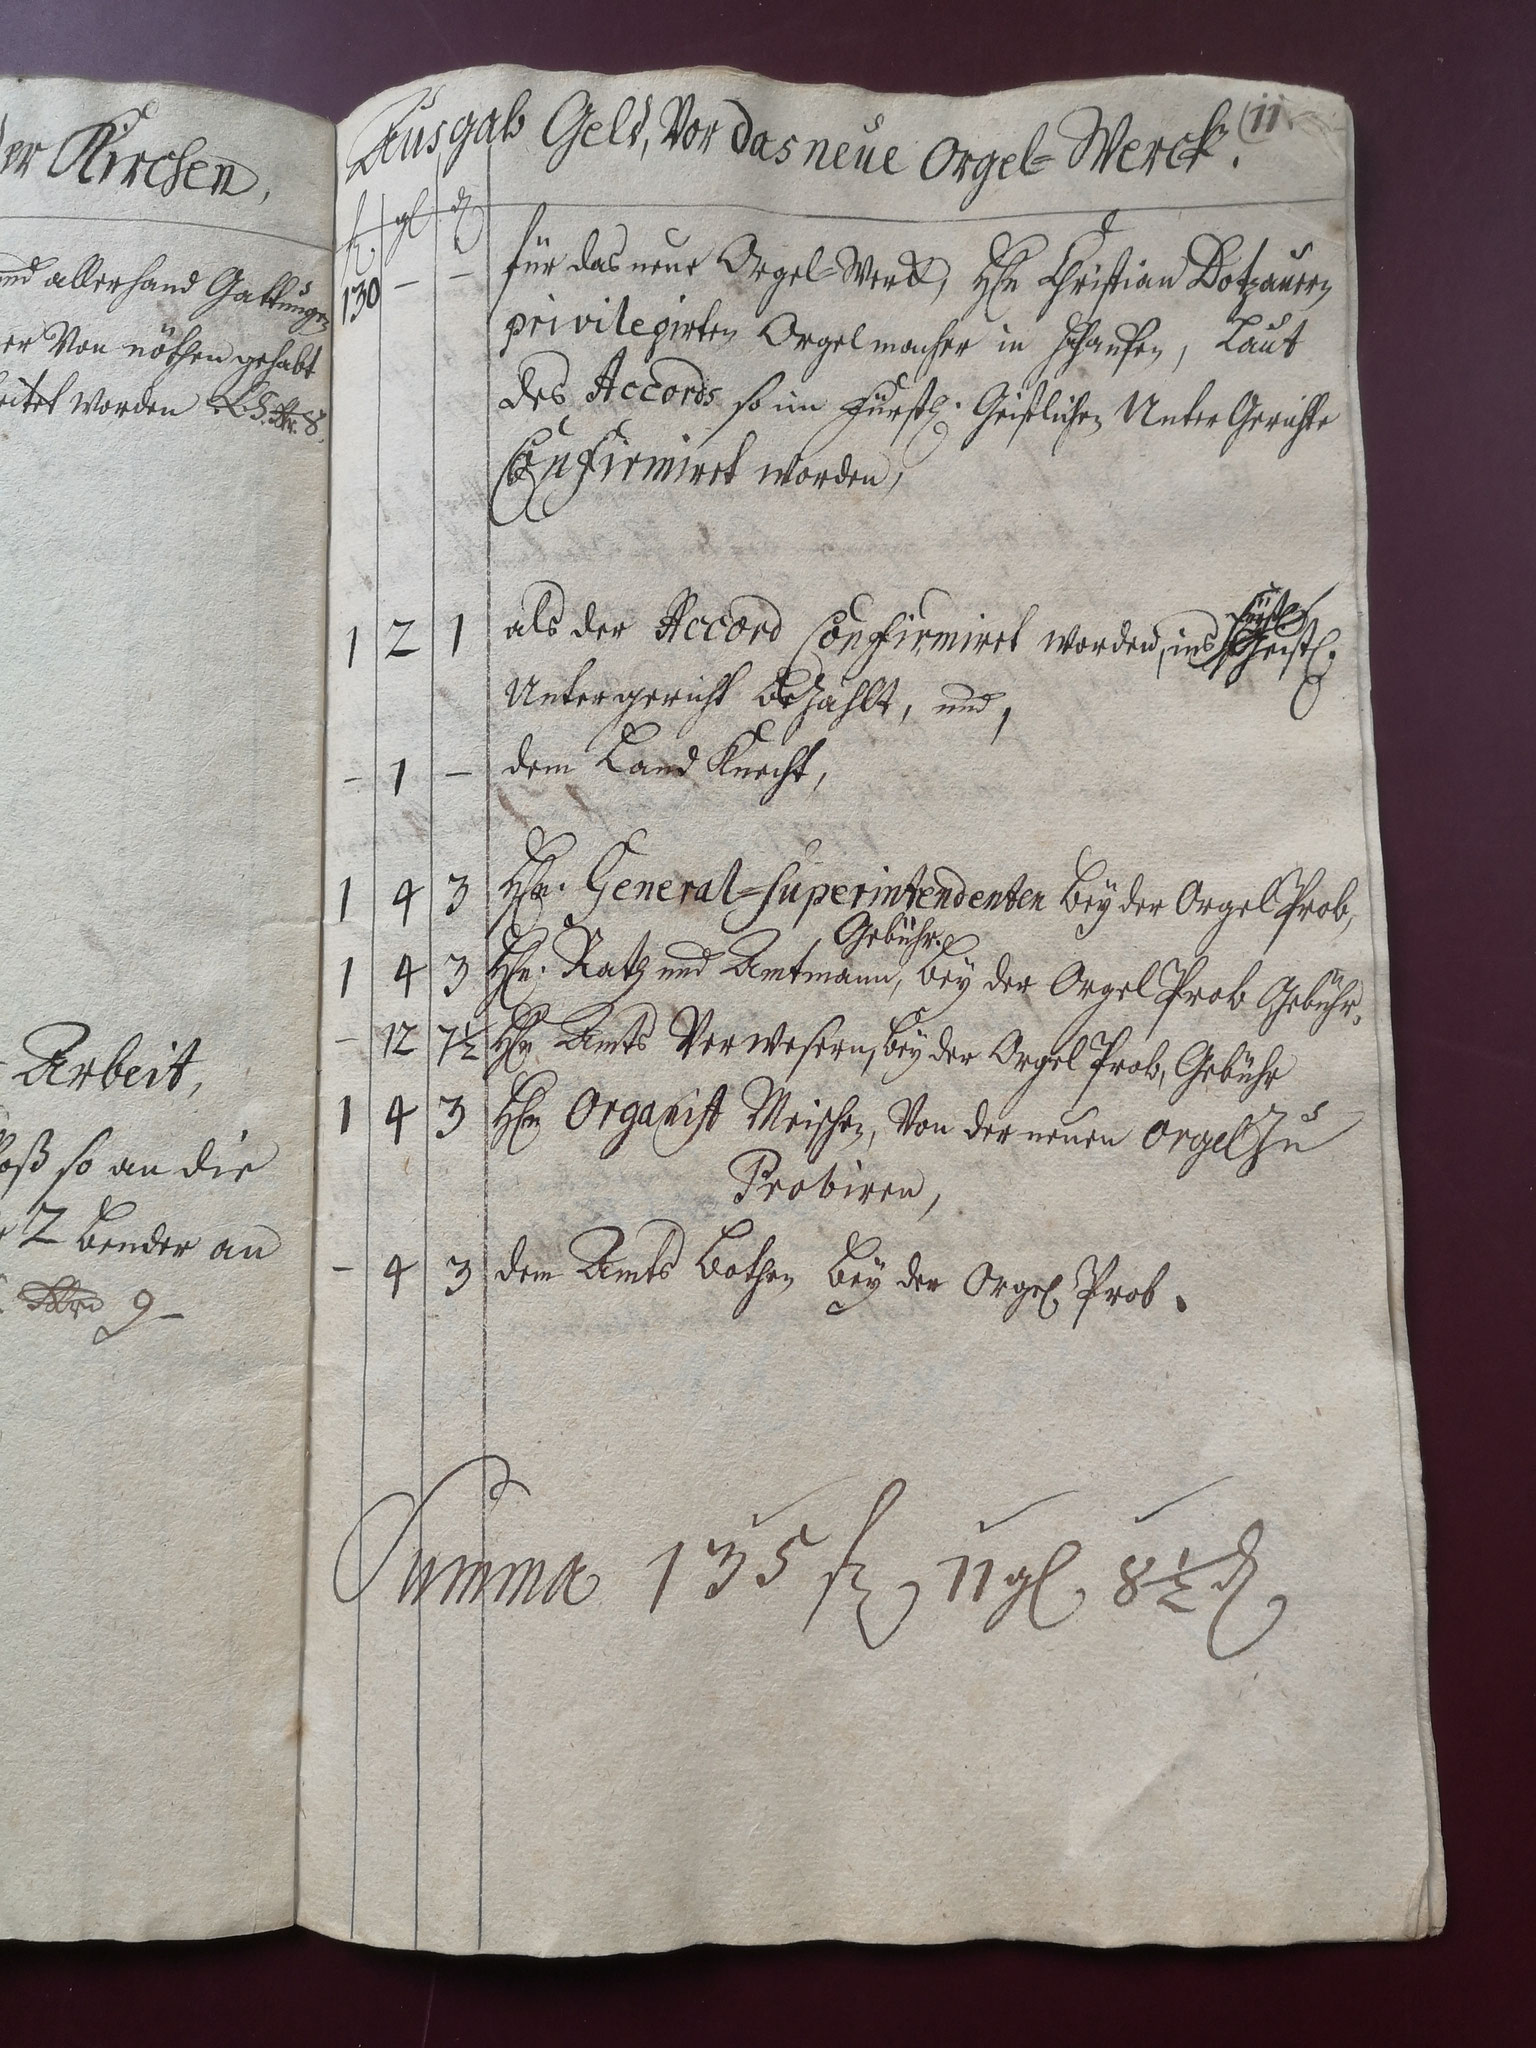 er Kirchen,
und allerhand Gattungen
er Von nöthen gehabt
eitet worden
Arbeit,
so an die
2 Bender an
9
11
Ausgab Geld, Vor das neue Orgel=Werck.
fl. gl. d
130 – – für das neue Orgel=Werck, Hrn Christian Dotzauern
privilegirten Orgelmacher in, Laut
des Accords so im Fürstl. Geistlichen Unter Gerichte
Confirmiret worden,
1 2 1 als der Accord Confirmiret worden, ins Fürstl. Geistl.
Untergericht bezahlt, und,
– 1 – dem Land Knecht,
1 4 3 Hrn. General=Superintendenten bey der Orgel Prob,
Gebühr.
1 4 3 Hrn. Rath und Amtmann, bey der Orgel Prob Gebühr.
– 12 7½ Hrn Amts Verwesern, bey der Orgel Prob, Gebühr
1 4 3 Hrn Organist, Von der neuen Orgel Zu
Probiren,
– 4 3 dem Amts Bothen bey der Orgel Prob.
Summa 135 fl 11 gl 8½ d